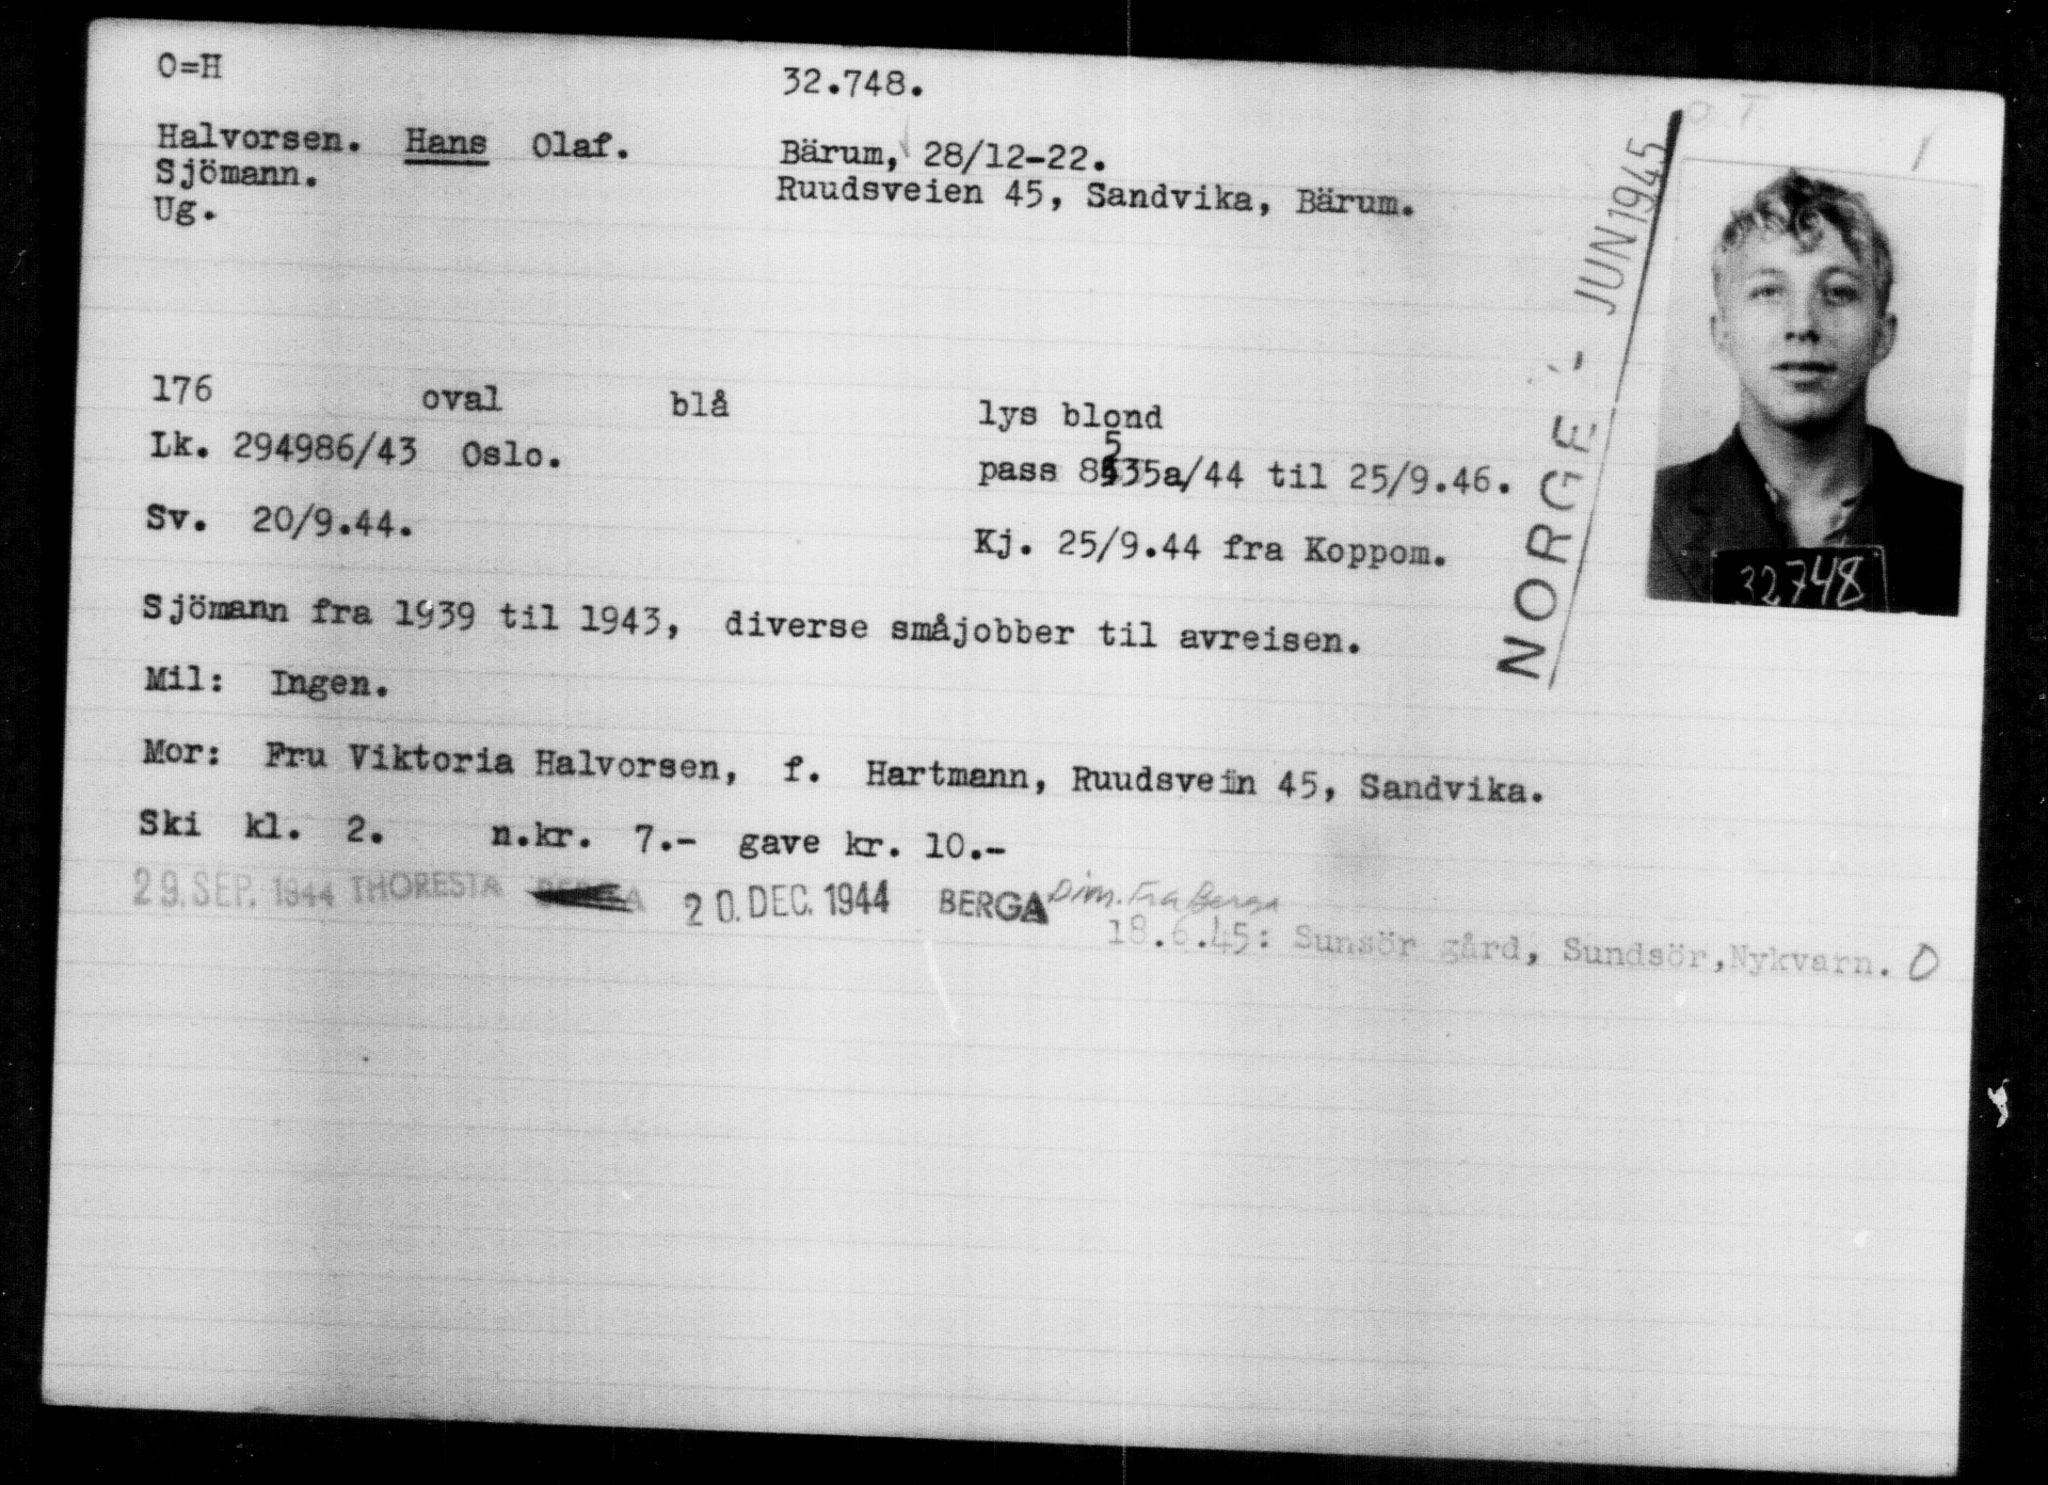 O=H 32.748.
Halvorsen. Hans Olaf. Bärum, 28/12-22.
Sjömann. Ruudsveien 45, Sandvika, Bärum.
Ug.
O.T.
NORGE - JUN 1945
32748
176 oval blå lys blond
Lk. 294986/43 Oslo. pass 8535a/44 til 25/9.46.
Sv. 20/9.44. Kj. 25/9.44 fra Koppom.
Sjömann fra 1939 til 1943, diverse småjobber til avreisen.
Mil: Ingen.
Mor: Fru Viktoria Halvorsen, f. Hartmann, Ruudsvein 45, Sandvika.
Ski kl. 2. n.kr. 7.- gave kr. 10.-
29. SEP. 1944 THORESTA BERGA 20. DEC. 1944 BERGA Dim. Fra Berga
18.6.45: Sunsör gård, Sundsör, Nykvarn. O